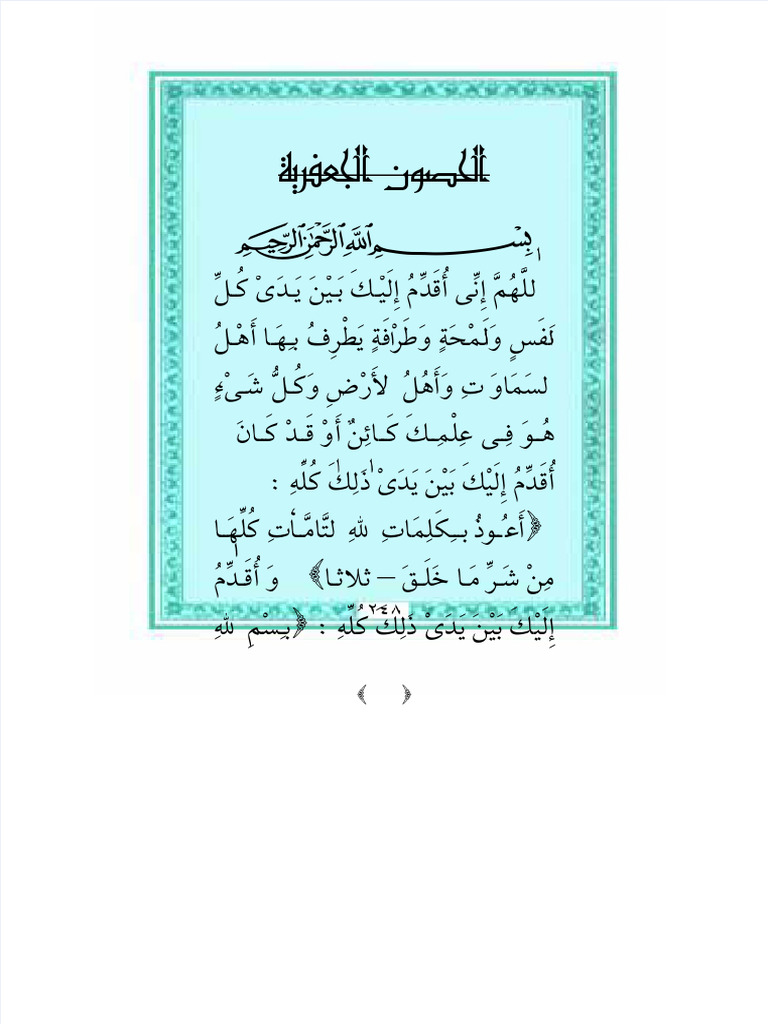 الحصون الجعفرية
بِسْمِ اللَّهِ الرَّحْمَٰنِ الرَّحِيمِ
للَّهُمَّ إِنِّى أُقَدِّمُ إِلَيْكَ بَيْنَ يَدَىْ كُلِّ
نَفَسٍ وَلَمْحَةٍ وَطَرْفَةٍ يَطْرِفُ بِهَا أَهْلُ
لسَمَاوَتِ وَأَهْلُ لأَرْضِ وَكُلُّ شَىْءٍ
هُوَ فِى عِلْمِكَ كَائِنٌ أَوْ قَدْ كَانَ
أُقَدِّمُ إِلَيْكَ بَيْنَ يَدَىْ ذَٰلِكَ كُلِّهِ :
﴿أَعُوذُ بِكَلِمَاتِ للهِ لتَّامَّاتِ كُلِّهَا
مِنْ شَرِّ مَا خَلَقَ – ثلاثا﴾ وَ أُقَدِّمُ
إِلَيْكَ بَيْنَ يَدَىْ ذَلِكَ كُلِّهِ : ﴿بِسْمِ للهِ
٢٤٨
﴾ ﴿